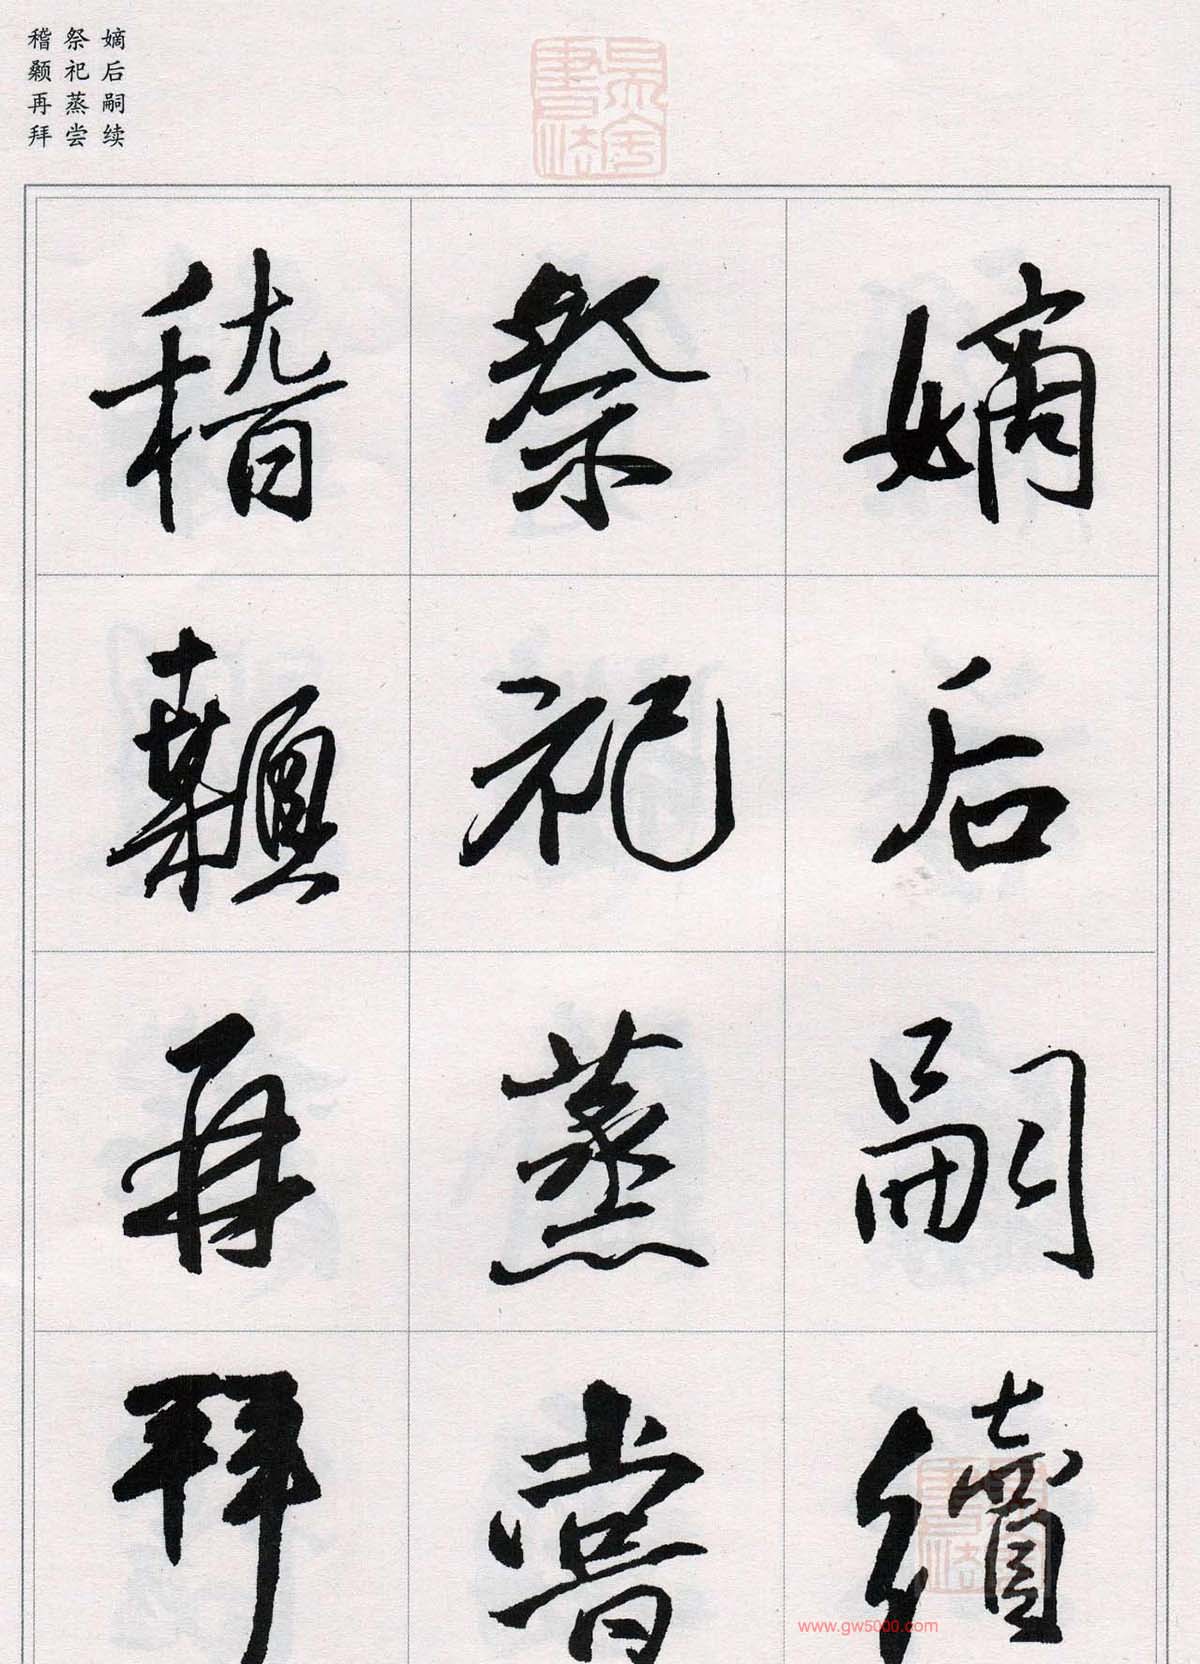 嫡后嗣续
祭祀蒸尝
稽颡再拜
嫡后嗣續
祭祀蒸嘗
稽顙再拜
www.gw5000.com